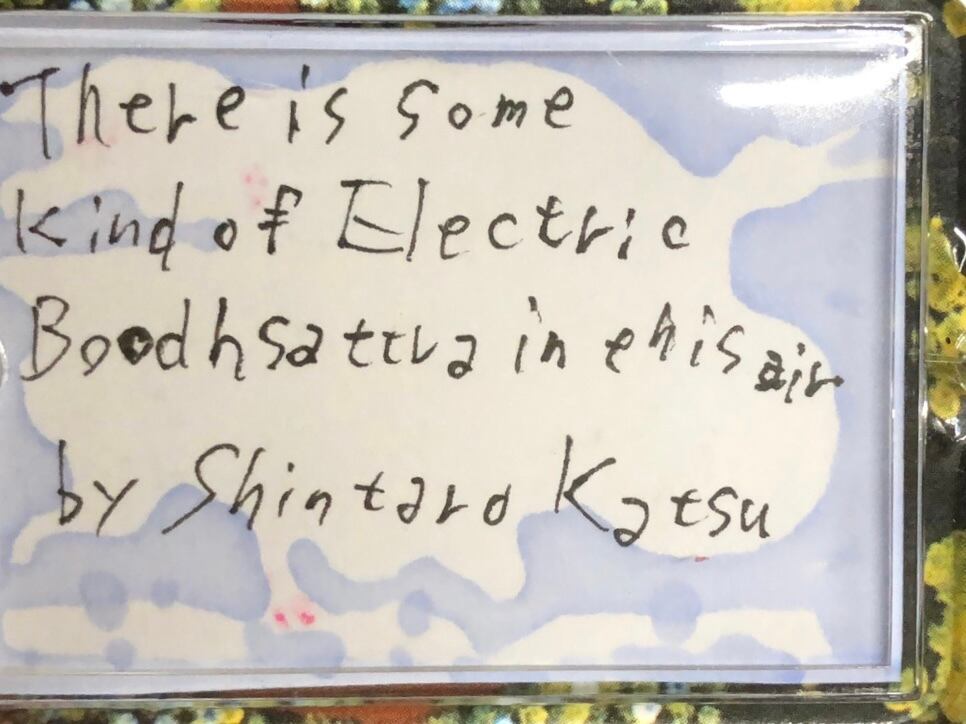 There is some
Kind of Electric
Boodhsattva in ehis air
by Shintaro Katsu